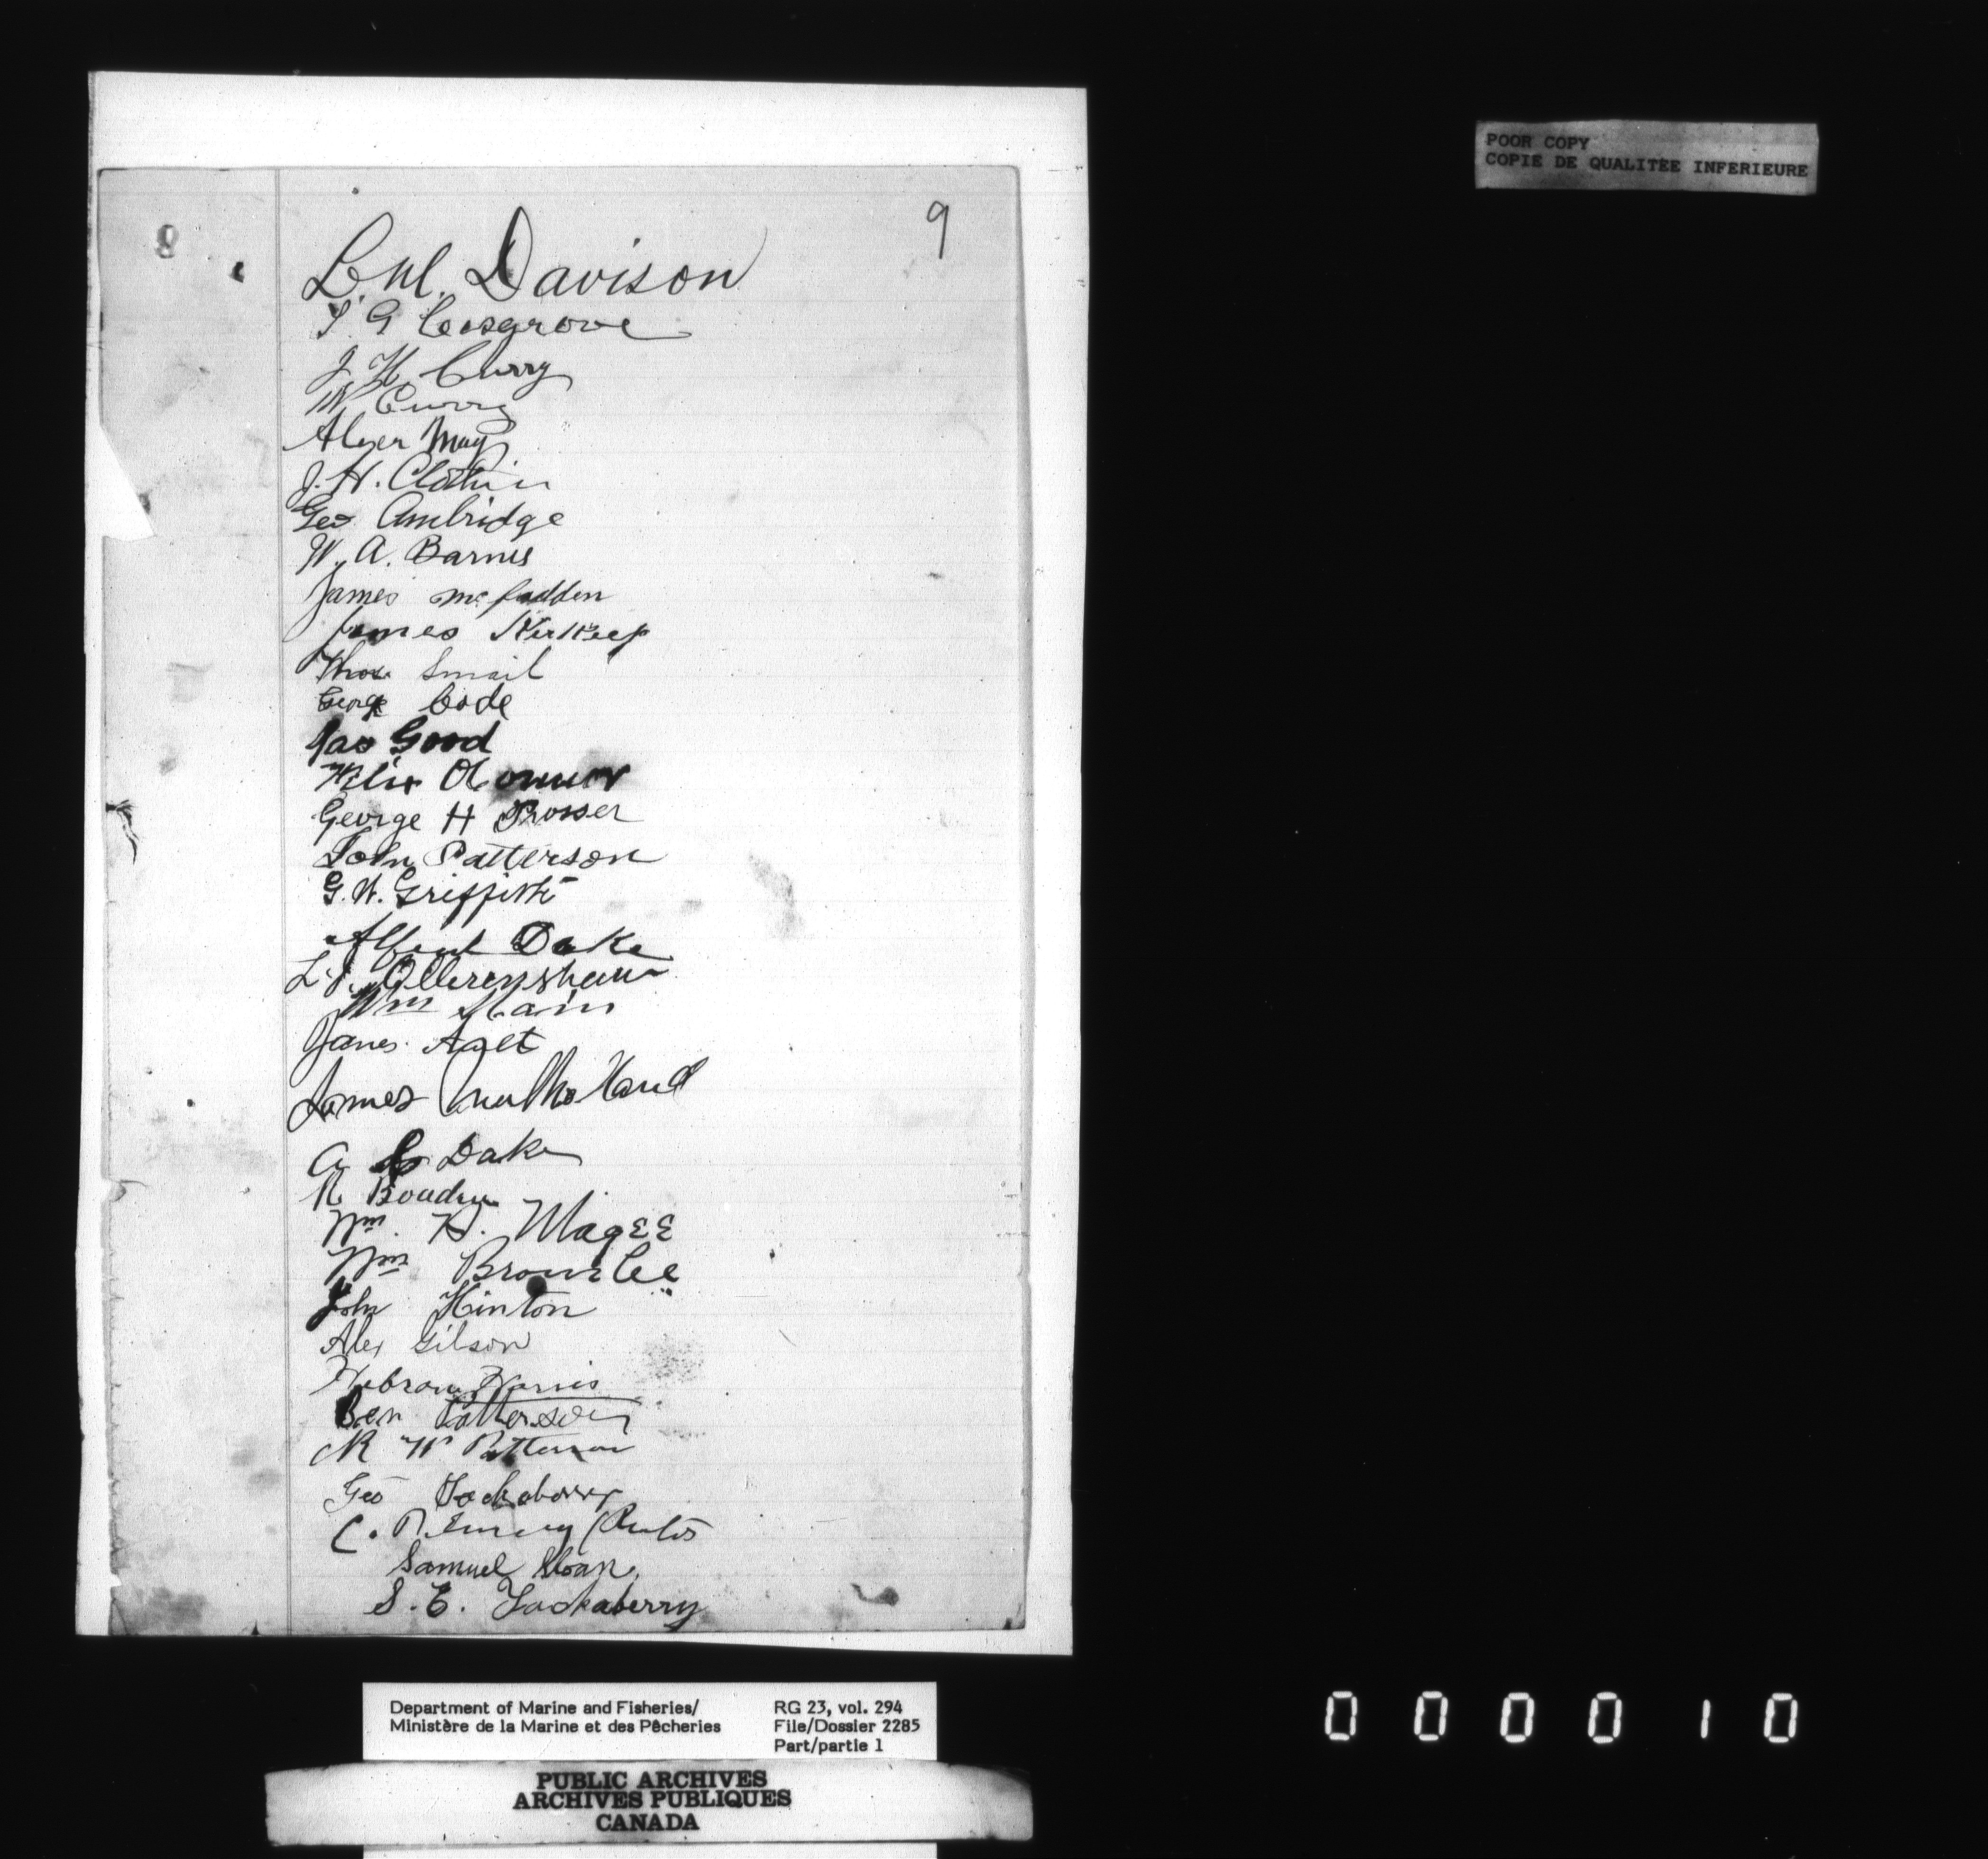 POOR COPY
COPIE DE QUALITEE INFERIEURE
9
8
Davison
T. G Cosgrove
J H Curry
W Curry
Alger May
J. H. Clothier
Geo Ambridge
W. A. Barnes
James mcfadden
James
Thos Smail
George Code
Jas Good
O Connor
George H Prosser
John Patterson
G. W. Griffith
Albert Dake
L. J. Ollerenshaw
Wm Main
James
James Mulholland
A Dake
R
Wm. H. Magee
Wm Brownlee
John Hinton
Alex Gilson
Harris
Ben Patterson
R W Patterson
Geo Tackaberry
C. R. Emery
Samuel Sloan
S. E. Tackaberry
Department of Marine and Fisheries/
Ministère de la Marine et des Pêcheries
RG 23, vol. 294
File/Dossier 2285
Part/partie 1
PUBLIC ARCHIVES
ARCHIVES PUBLIQUES
CANADA
000010